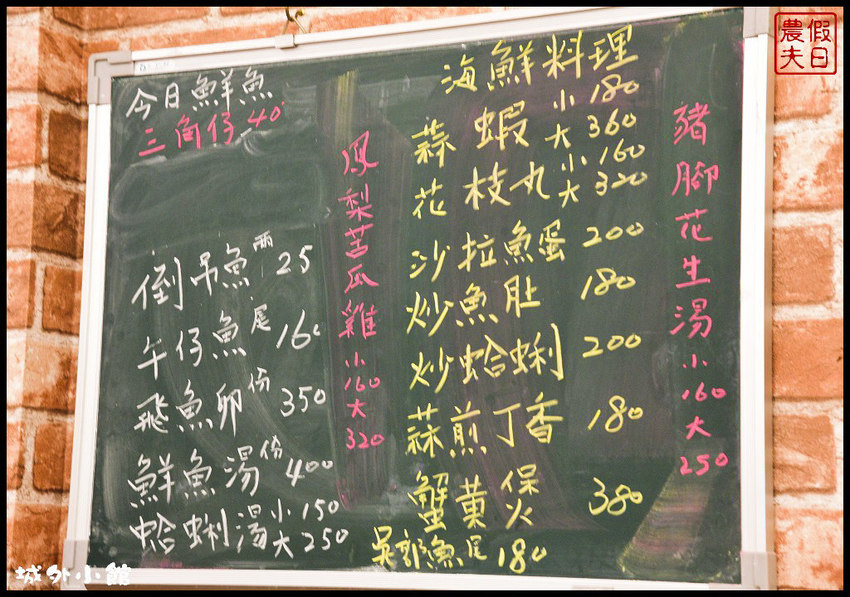 今日鮮魚
三角仔 40
倒吊魚 兩 25
午仔魚 尾 160
飛魚卵 份 350
鮮魚湯 份 400
蛤蜊湯 小 150
大 250
鳳梨苦瓜雞 小 160 大 320
海鮮料理
蒜蝦 小 180
大 360
花枝丸 小 160
大 320
沙拉魚蛋 200
炒魚肚 180
炒蛤蜊 200
蒜煎丁香 180
蟹黃保火 380
吳郭魚 尾 180
豬腳花生湯 小 160 大 250
假日農夫
城外小館